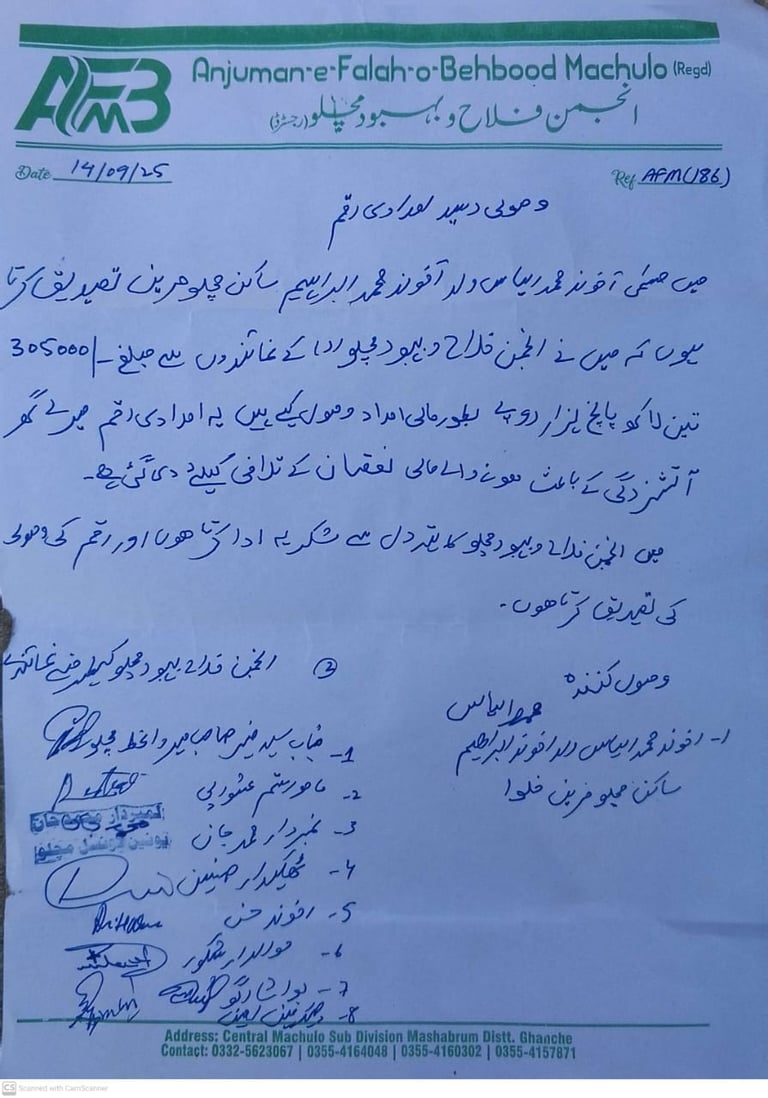 AFMB
Anjuman-e-Falah-o-Behbood Machulo (Regd)
انجمن فلاح و بہبود مچلو (رجسٹرڈ)
Date 14/09/25
Ref AFM(186)
وصولی رسید امدادی رقم
میں مسمی آخوند محمد الیاس ولد آخوند محمد ابراہیم ساکن مچلو تصدیق کرتا
ہوں کہ میں نے انجمن فلاح و بہبود مچلو کے نمائندوں سے مبلغ 305000/-
تین لاکھ پانچ ہزار روپے بطور مالی امداد وصول کیے ہیں یہ امدادی رقم میرے گھر
آتشزدگی کے باعث ہونے والے مالی نقصان کے تلافی کیلئے دی گئی ہے۔
میں انجمن فلاح و بہبود مچلو کا دل سے شکریہ ادا کرتا ہوں اور رقم کی وصولی
کی تصدیق کرتا ہوں۔
وصول کنندہ
محمد الیاس
1- اخوند محمد الیاس ولد اخوند ابراہیم
ساکن مچلو
② انجمن فلاح بہبود مچلو کیطرف سے نمائندے
1- جناب سید صاحب مچلو
2- رستم
3- نمبردار محمد جان
نمبردار محمد جان
یونین کونسل مچلو
4- ٹھیکیدار حسنین
5- اخوند حسن
6- حوالدار شکور
7-
8-
Address: Central Machulo Sub Division Mashabrum Distt. Ghanche
Contact: 0332-5623067 | 0355-4164048 | 0355-4160302 | 0355-4157871
CS Scanned with CamScanner